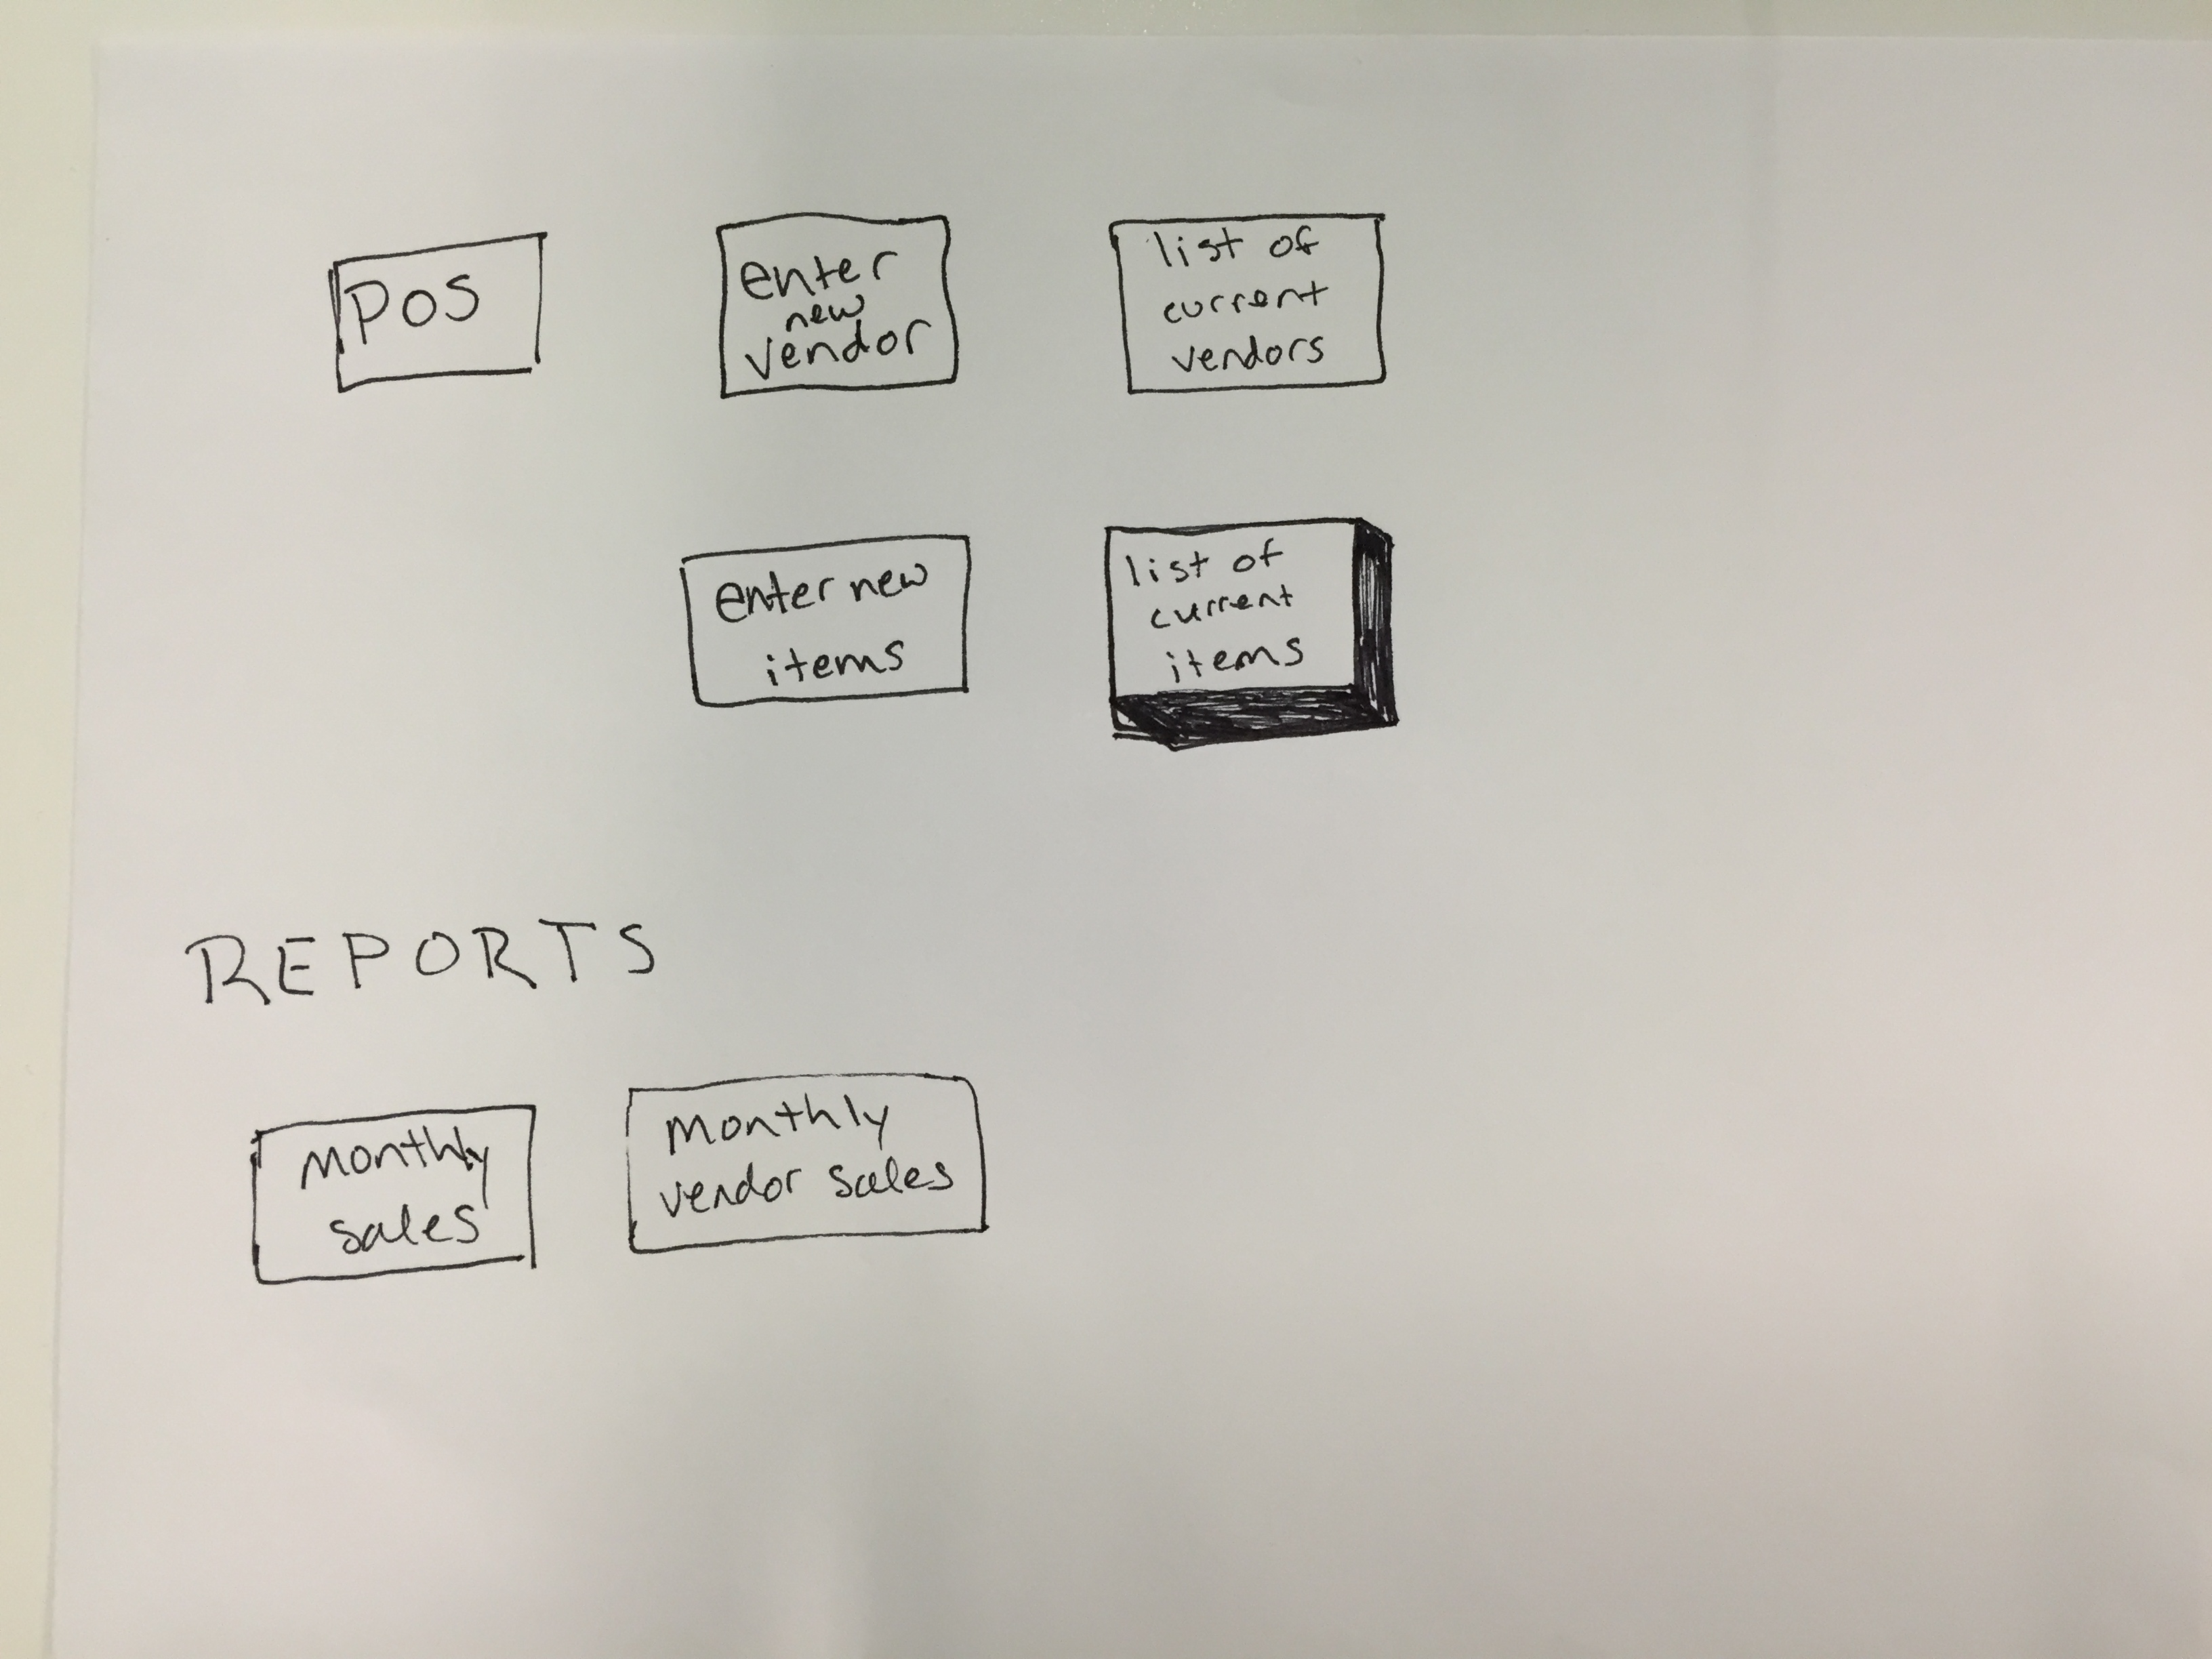 POS
enter
new
vendor
list of
current
vendors
enter new
items
list of
current
items
REPORTS
monthly
sales
monthly
vendor sales